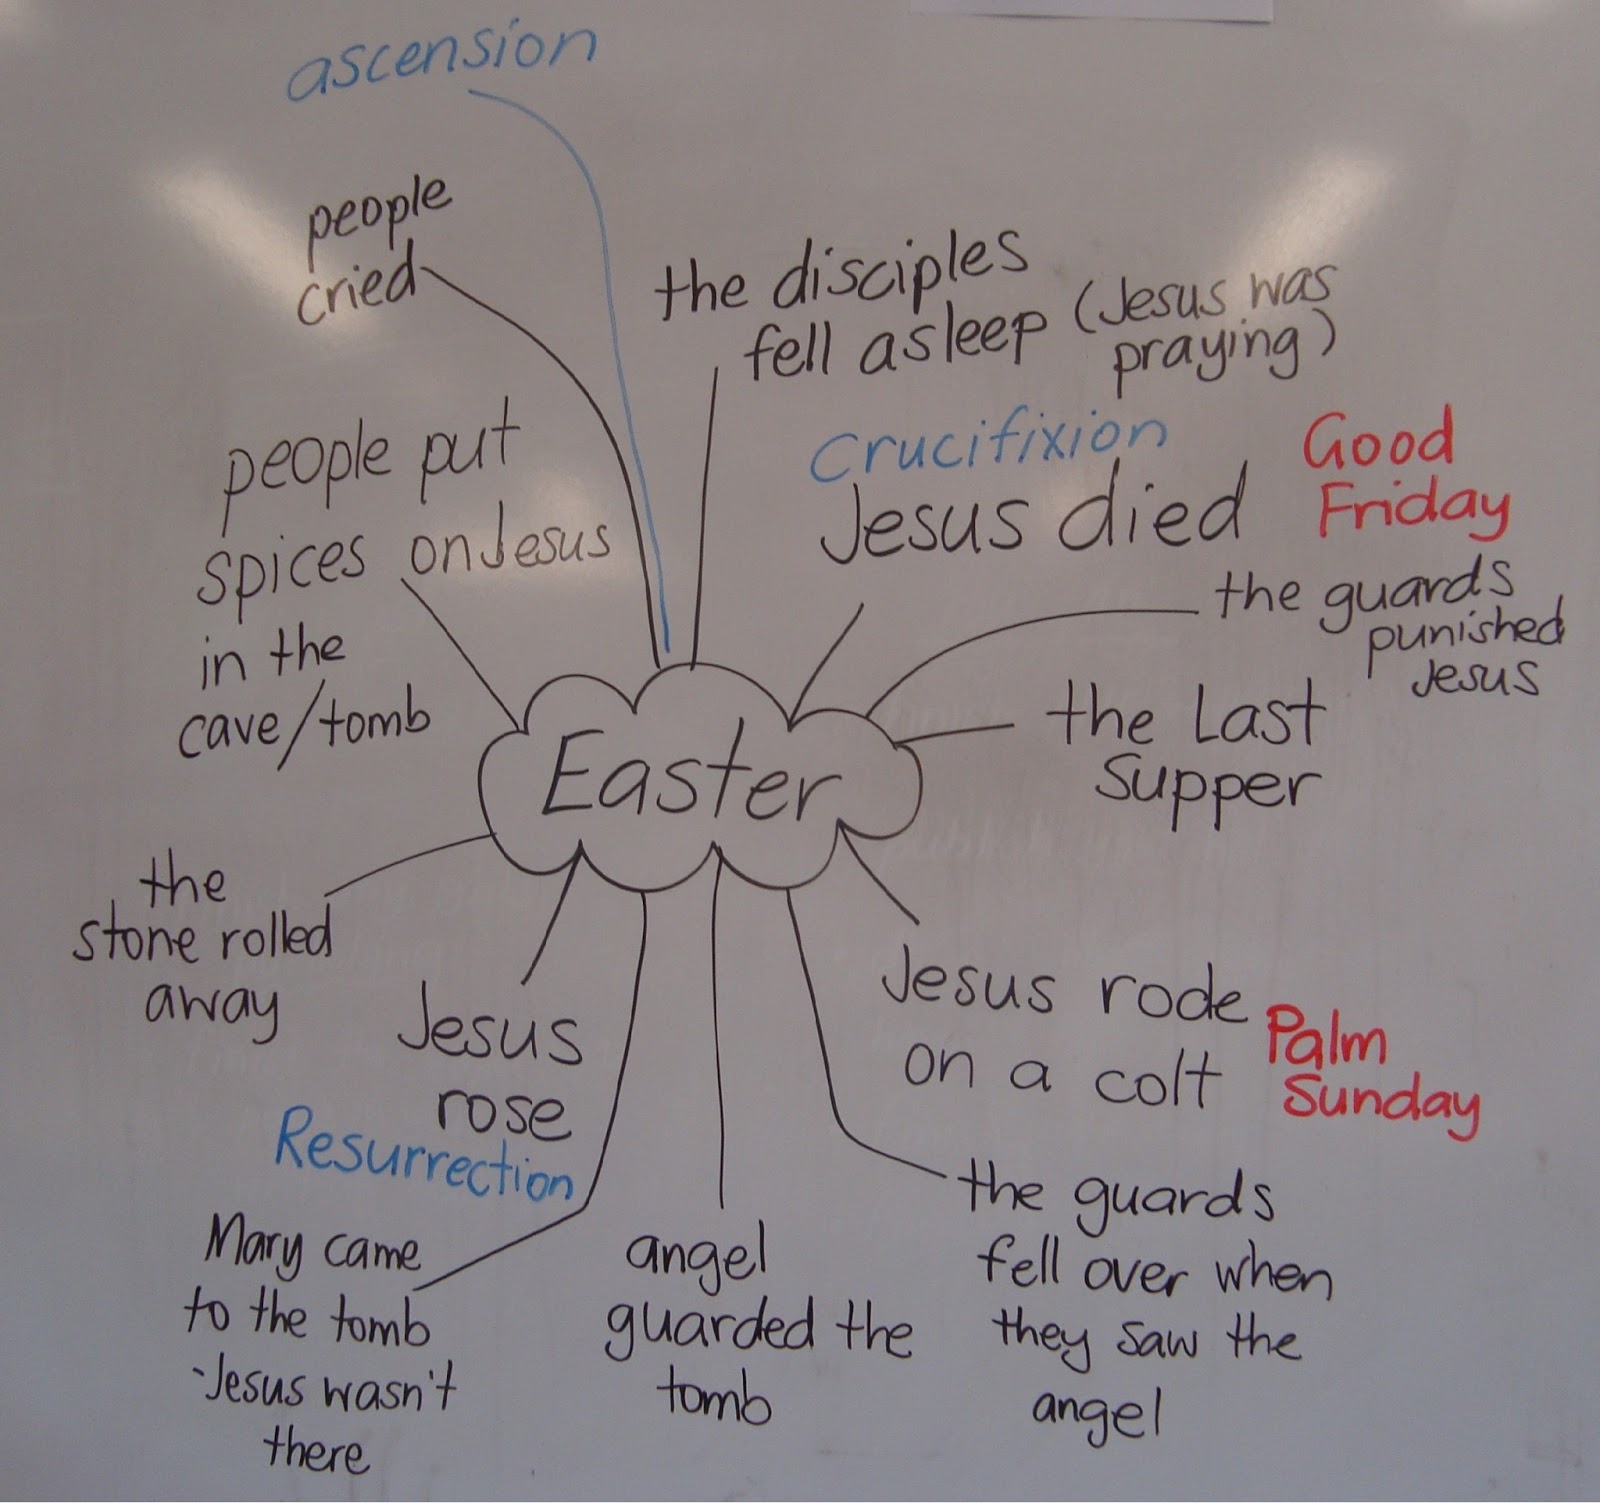 ascension
people
cried
the disciples
fell asleep (Jesus was
praying)
people put
spices on Jesus
in the
cave/tomb
Crucifixion
Jesus died
Good
Friday
the guards
punished
Jesus
the Last
Supper
Easter
the
stone rolled
away
Jesus
rose
Resurrection
Jesus rode
on a colt
Palm
Sunday
Mary came
to the tomb
-Jesus wasn't
there
angel
guarded the
tomb
the guards
fell over when
they saw the
angel